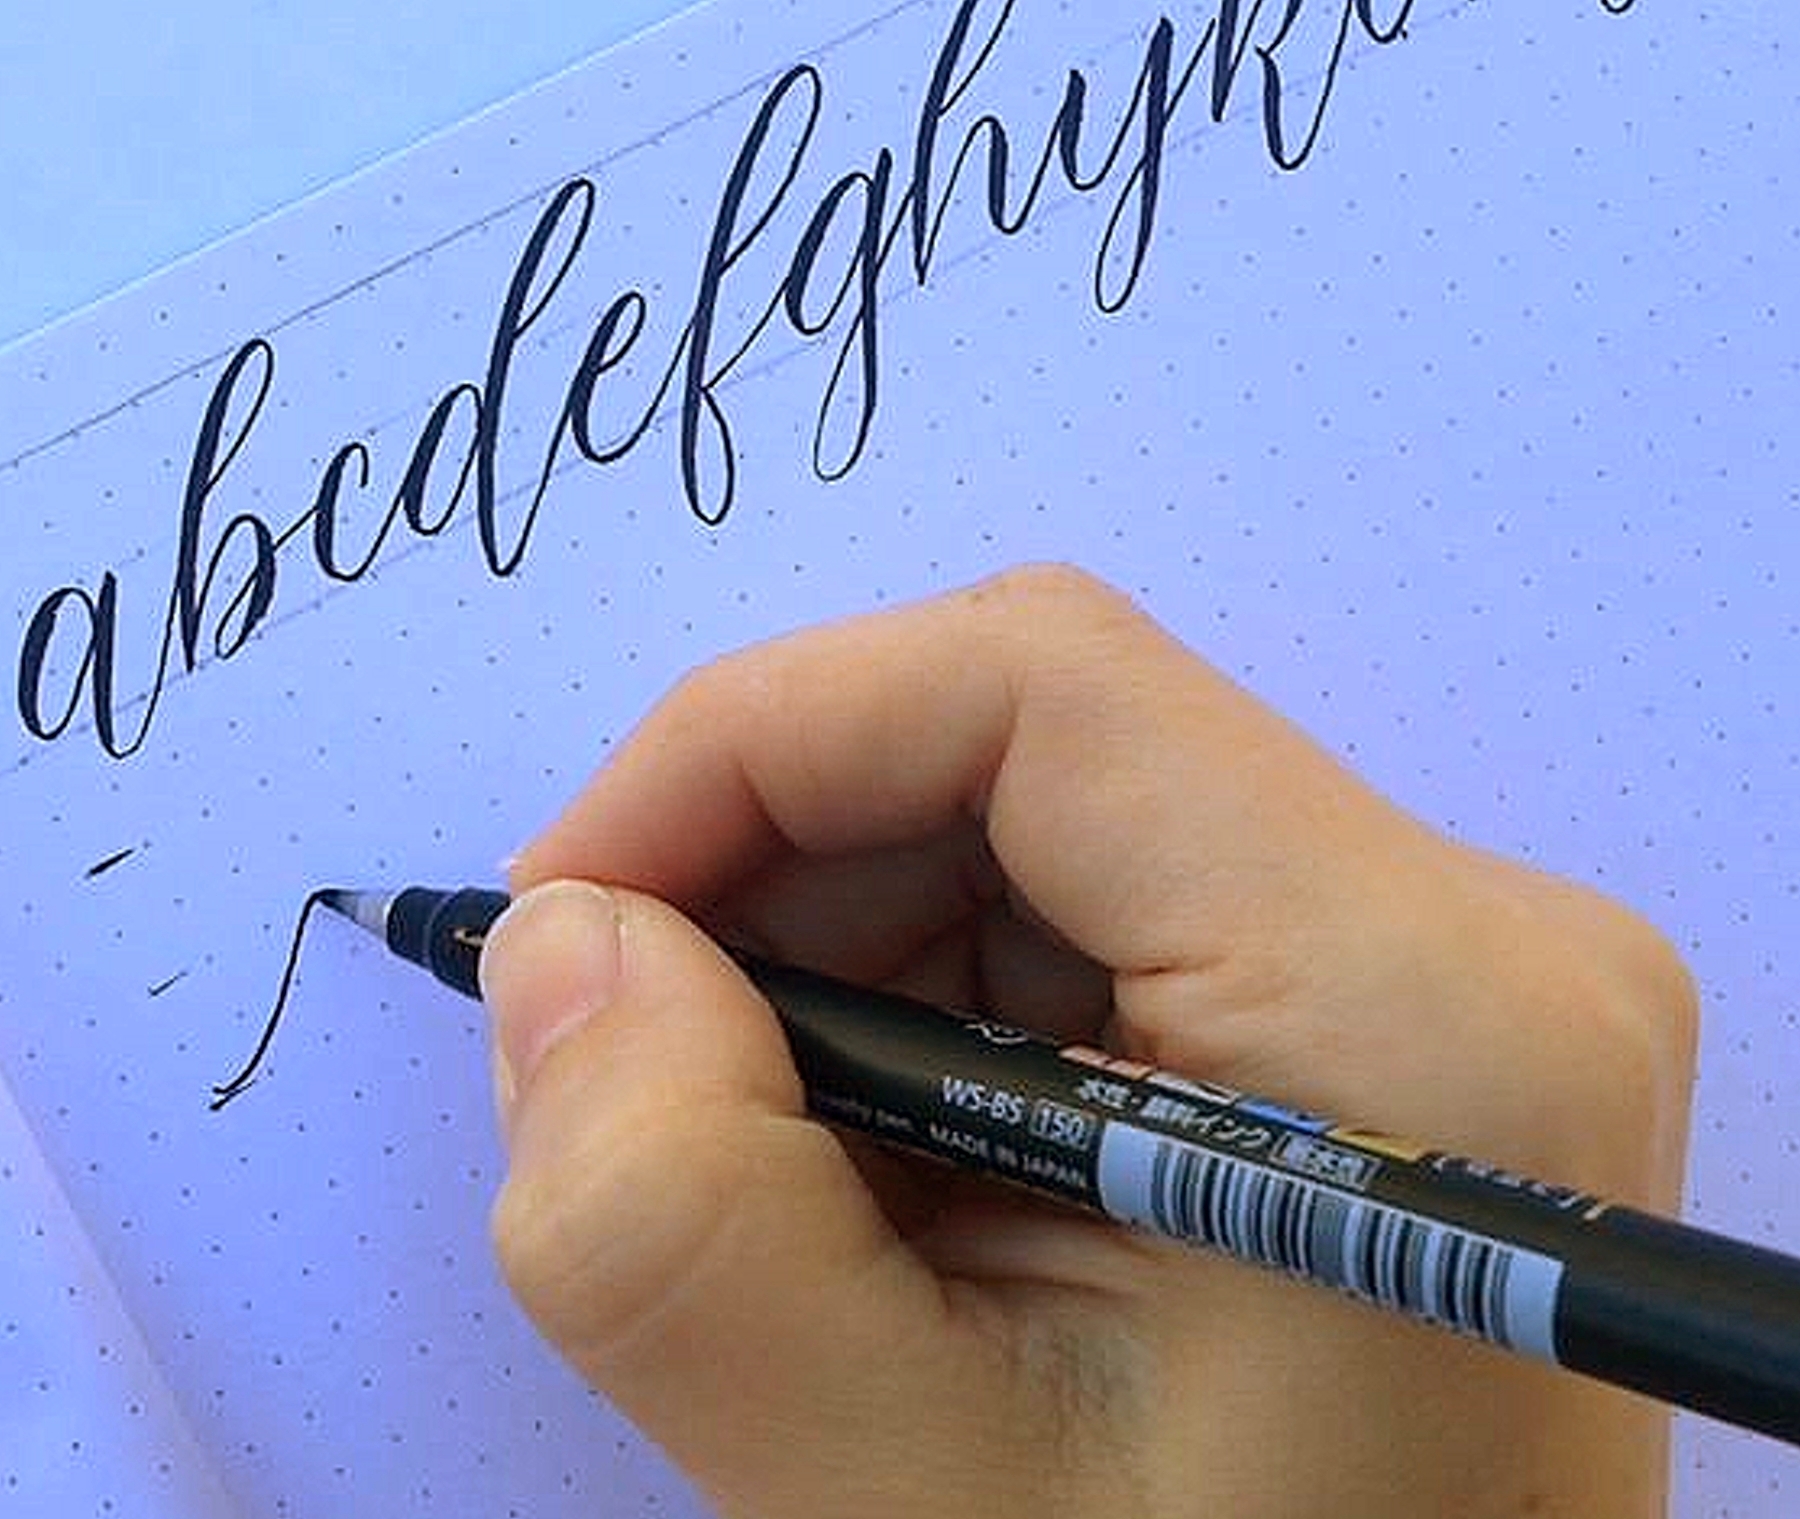 abcdefghijk
WS-BS 150
水性・顔料インク
pen. MADE IN JAPAN